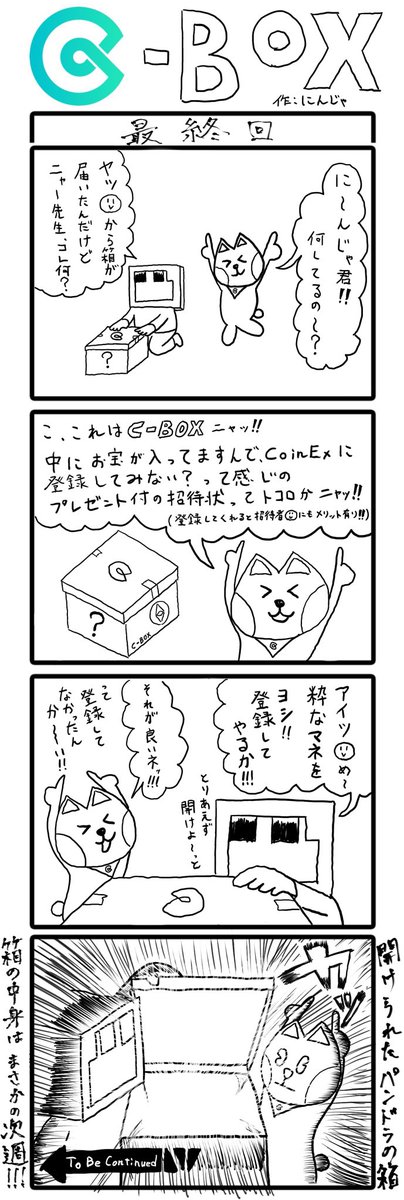 C-BOX
作:にんじゃ
最終回
に〜んじゃ君!!
何してるの〜?
ヤツから箱が
届いたんだけど
ニャー先生、コレ何?
?
こ、これは C-BOX ニャッ!!
中にお宝が入ってますんで、CoinExに
登録してみない?って感じの
プレゼント付の招待状ってトコロかニャッ!!
(登録してくれると招待者にもメリット有り!!)
?
C-BOX
アイツめ〜
粋なマネを
ヨシ!!
登録して
やるか!!!
それが良いネッ!!!
って
登録して
なかったん
か〜い!!
とりあえず
開けよ〜っと
開けられたパンドラの箱
箱の中身はまさかの次週!!!
To Be Continued